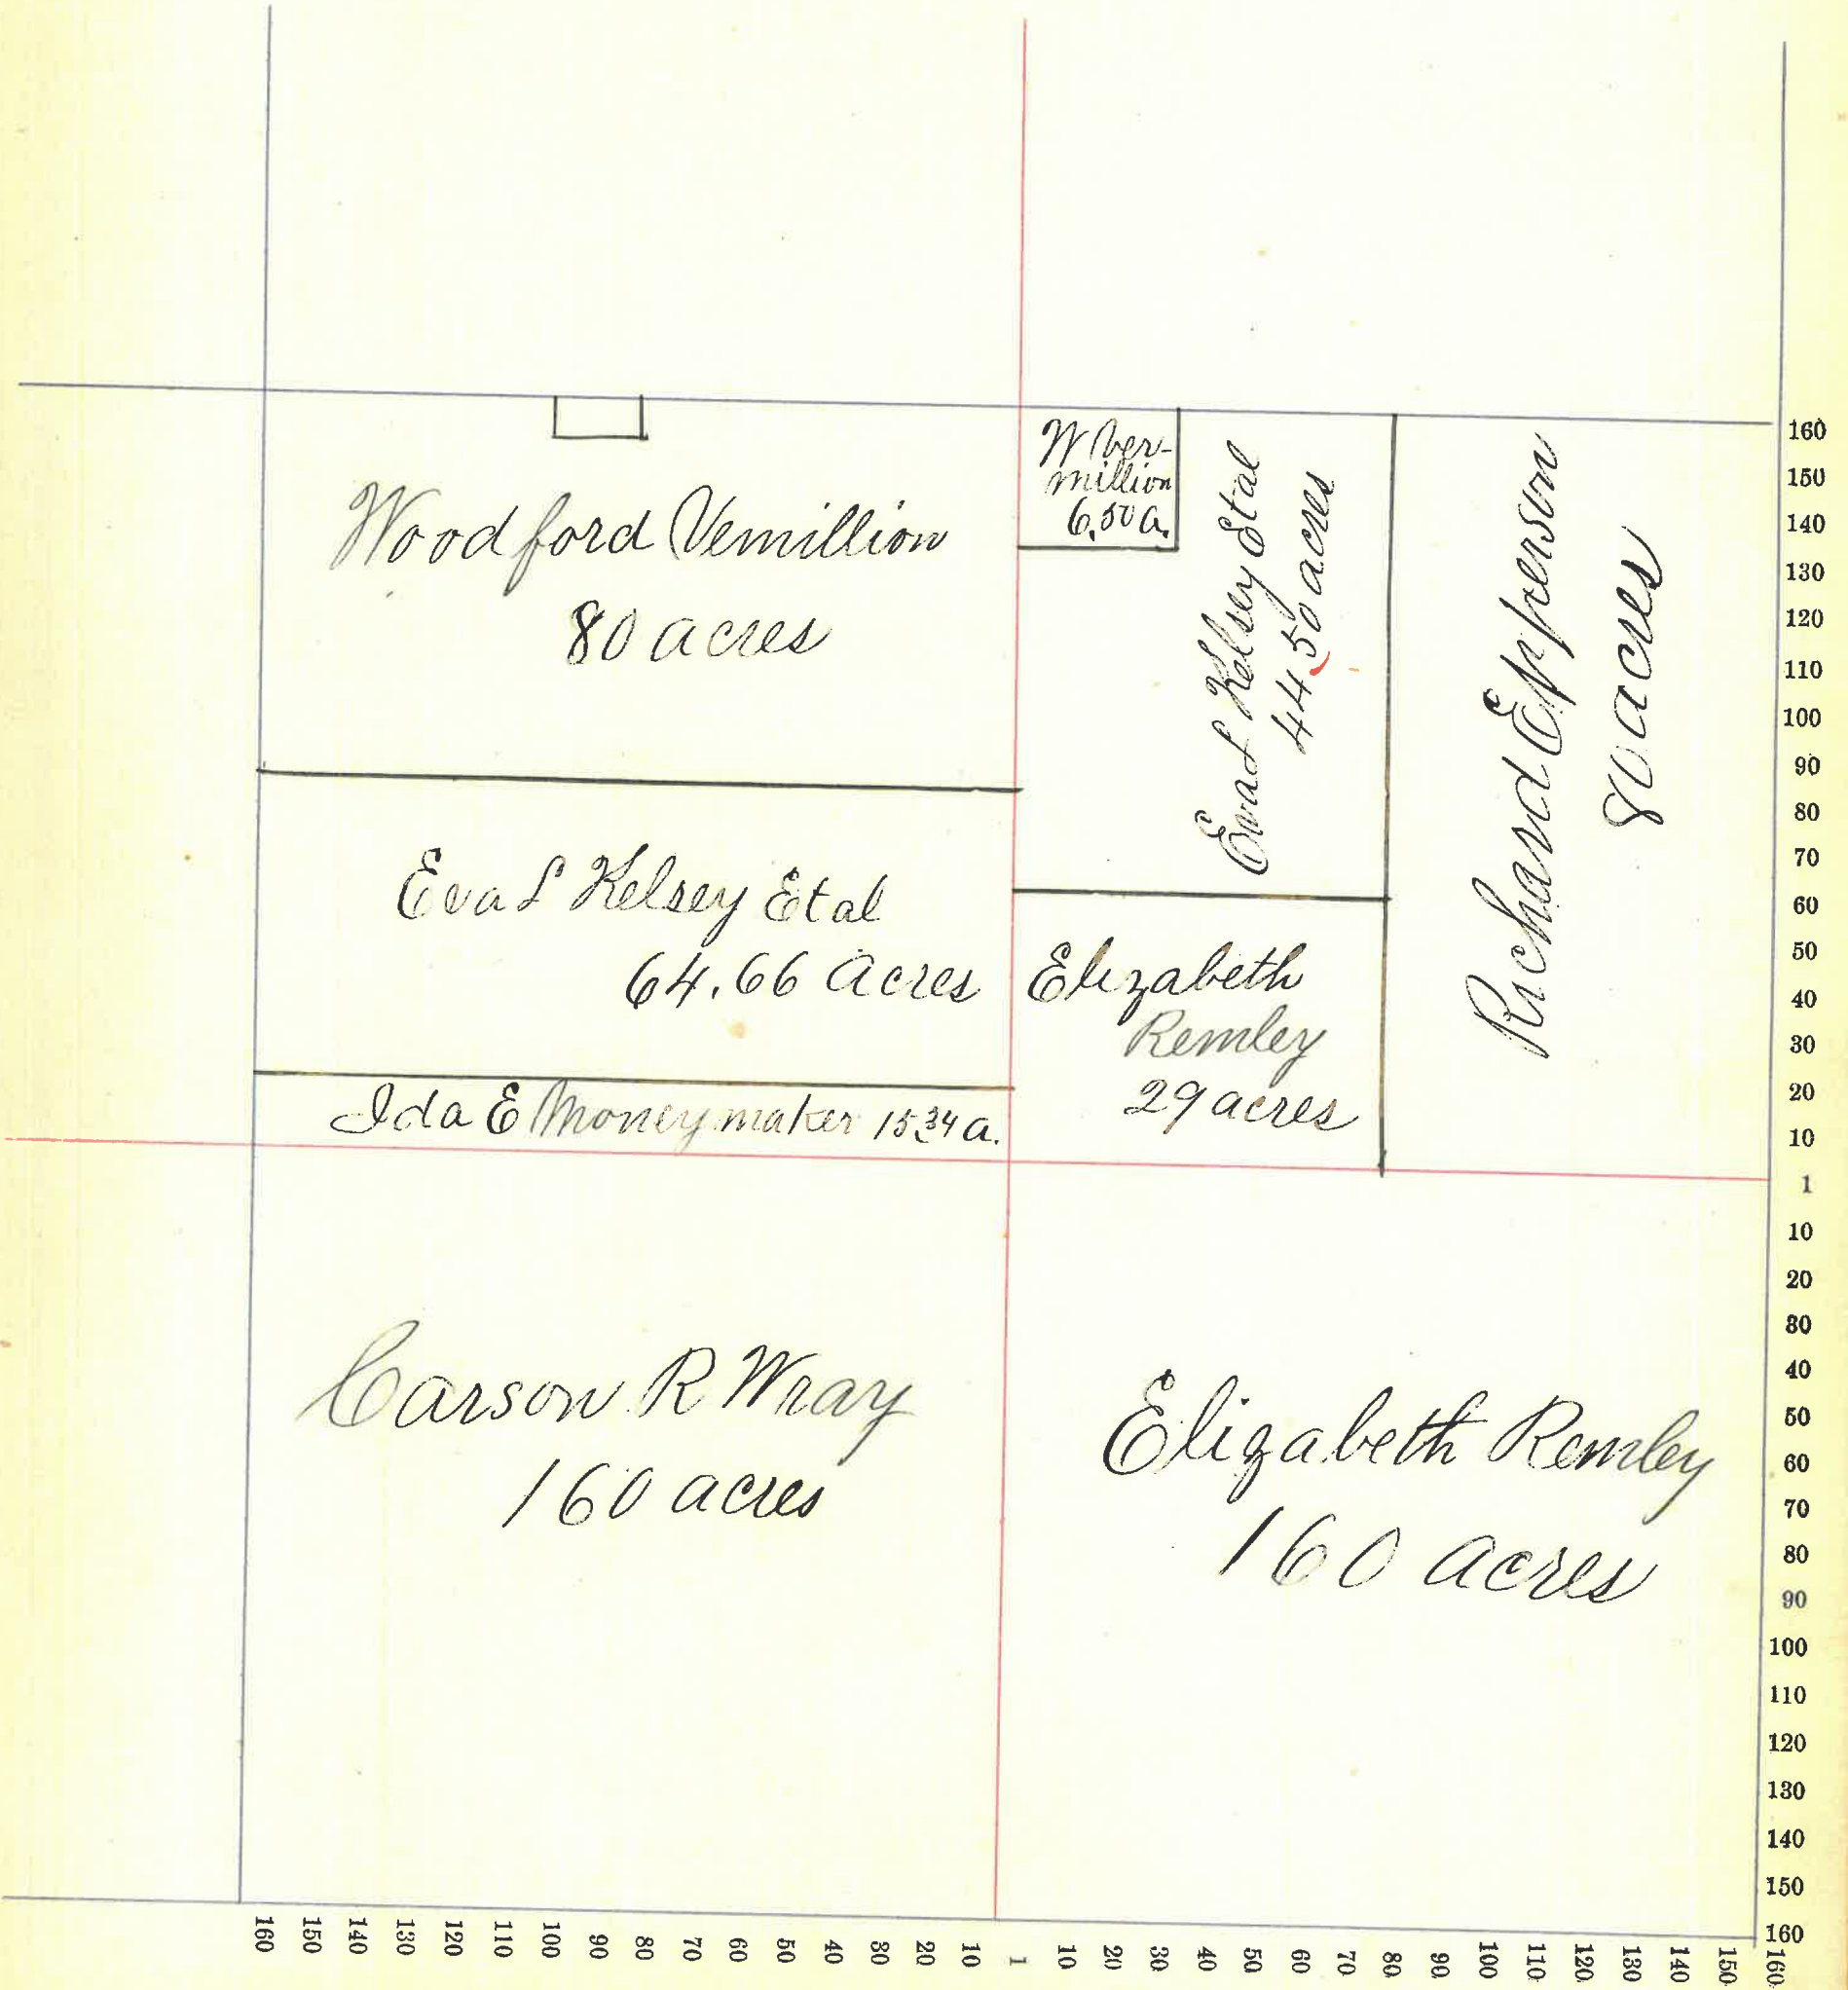 Woodford Vemillion
80 acres
W Ver-
million
6.50 a.
Eva L Kelsey Etal
44.50 acres
Richard Epperson
80 acres
Eva L Kelsey Etal
64.66 acres
Elizabeth
Remley
29 acres
Ida E Moneymaker 15.34 a.
Carson R Wray
160 acres
Elizabeth Remley
160 acres
160
150
140
130
120
110
100
90
80
70
60
50
40
30
20
10
1
10
20
30
40
50
60
70
80
90
100
110
120
130
140
150
160
160 150 140 130 120 110 100 90 80 70 60 50 40 30 20 10 1 10 20 30 40 50 60 70 80 90 100 110 120 130 140 150 160